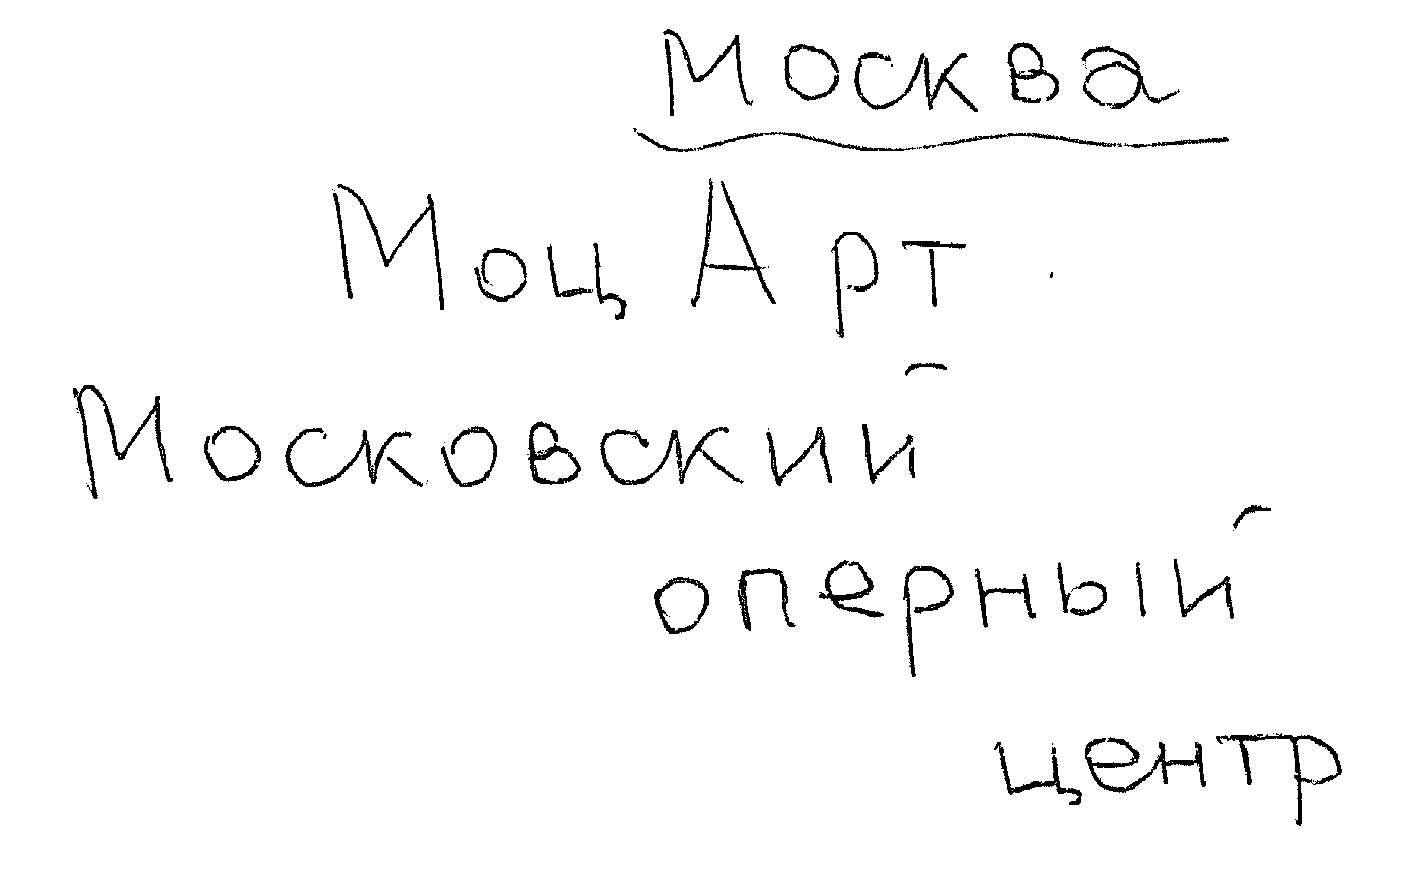 Москва
МоцАрт
Московский
оперный
центр